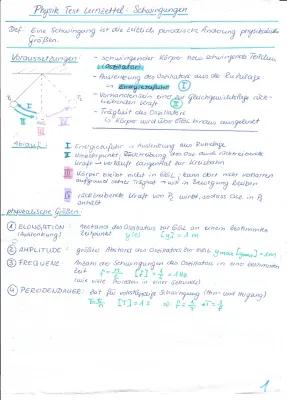 Physik Test Lernzettel: Schwingungen
Def: Eine Schwingung ist die zeitlich periodische Änderung physikalischer
Größen.
Voraussetzungen: - schwingender Körper bzw. schwingendes Teilchen
(Oszillator)
- Auslenkung des Oszillators aus der Ruhelage
→ Energiezufuhr I
- Vorhandensein einer zur Gleichgewichtslage rück-
treibenden Kraft II
- Trägheit des Oszillators
→ Körper wird über hinaus ausgelenkt
Ablauf: I Energiezufuhr → Auslenkung aus Ruhelage
II rücktreibende
Kraft → verläuft tangential zur Kreisbahn
III Körper bleibt nicht in GGL, kann dort nicht verharren
aufgrund seiner Trägheit → ist in Bewegung bleiben
rücktreibende Kraft von P₂ wirkt, sodass Osz. in P₂
anhält
physikalische Größen:
1 ELONGATION: Abstand des Oszillators zur GGL an einem bestimmten
(Auslenkung) Zeitpunkt y(t) [y] = 1 m
2 AMPLITUDE: größter Abstand des Oszillators zur GGL ymax [ymax] = 1m
3 FREQUENZ: Anzahl der Schwingungen des Oszillators in einer bestimmten
Zeit f = n/t [f] = 1/s = 1Hz
(wie viele Perioden in einer Sekunde)
4 PERIODENDAUER: Zeit für vollständige Schwingung (Hin- und Hergang)
T = t/n [T] = 1s ⇒ f = 1/T → T = 1/f
1